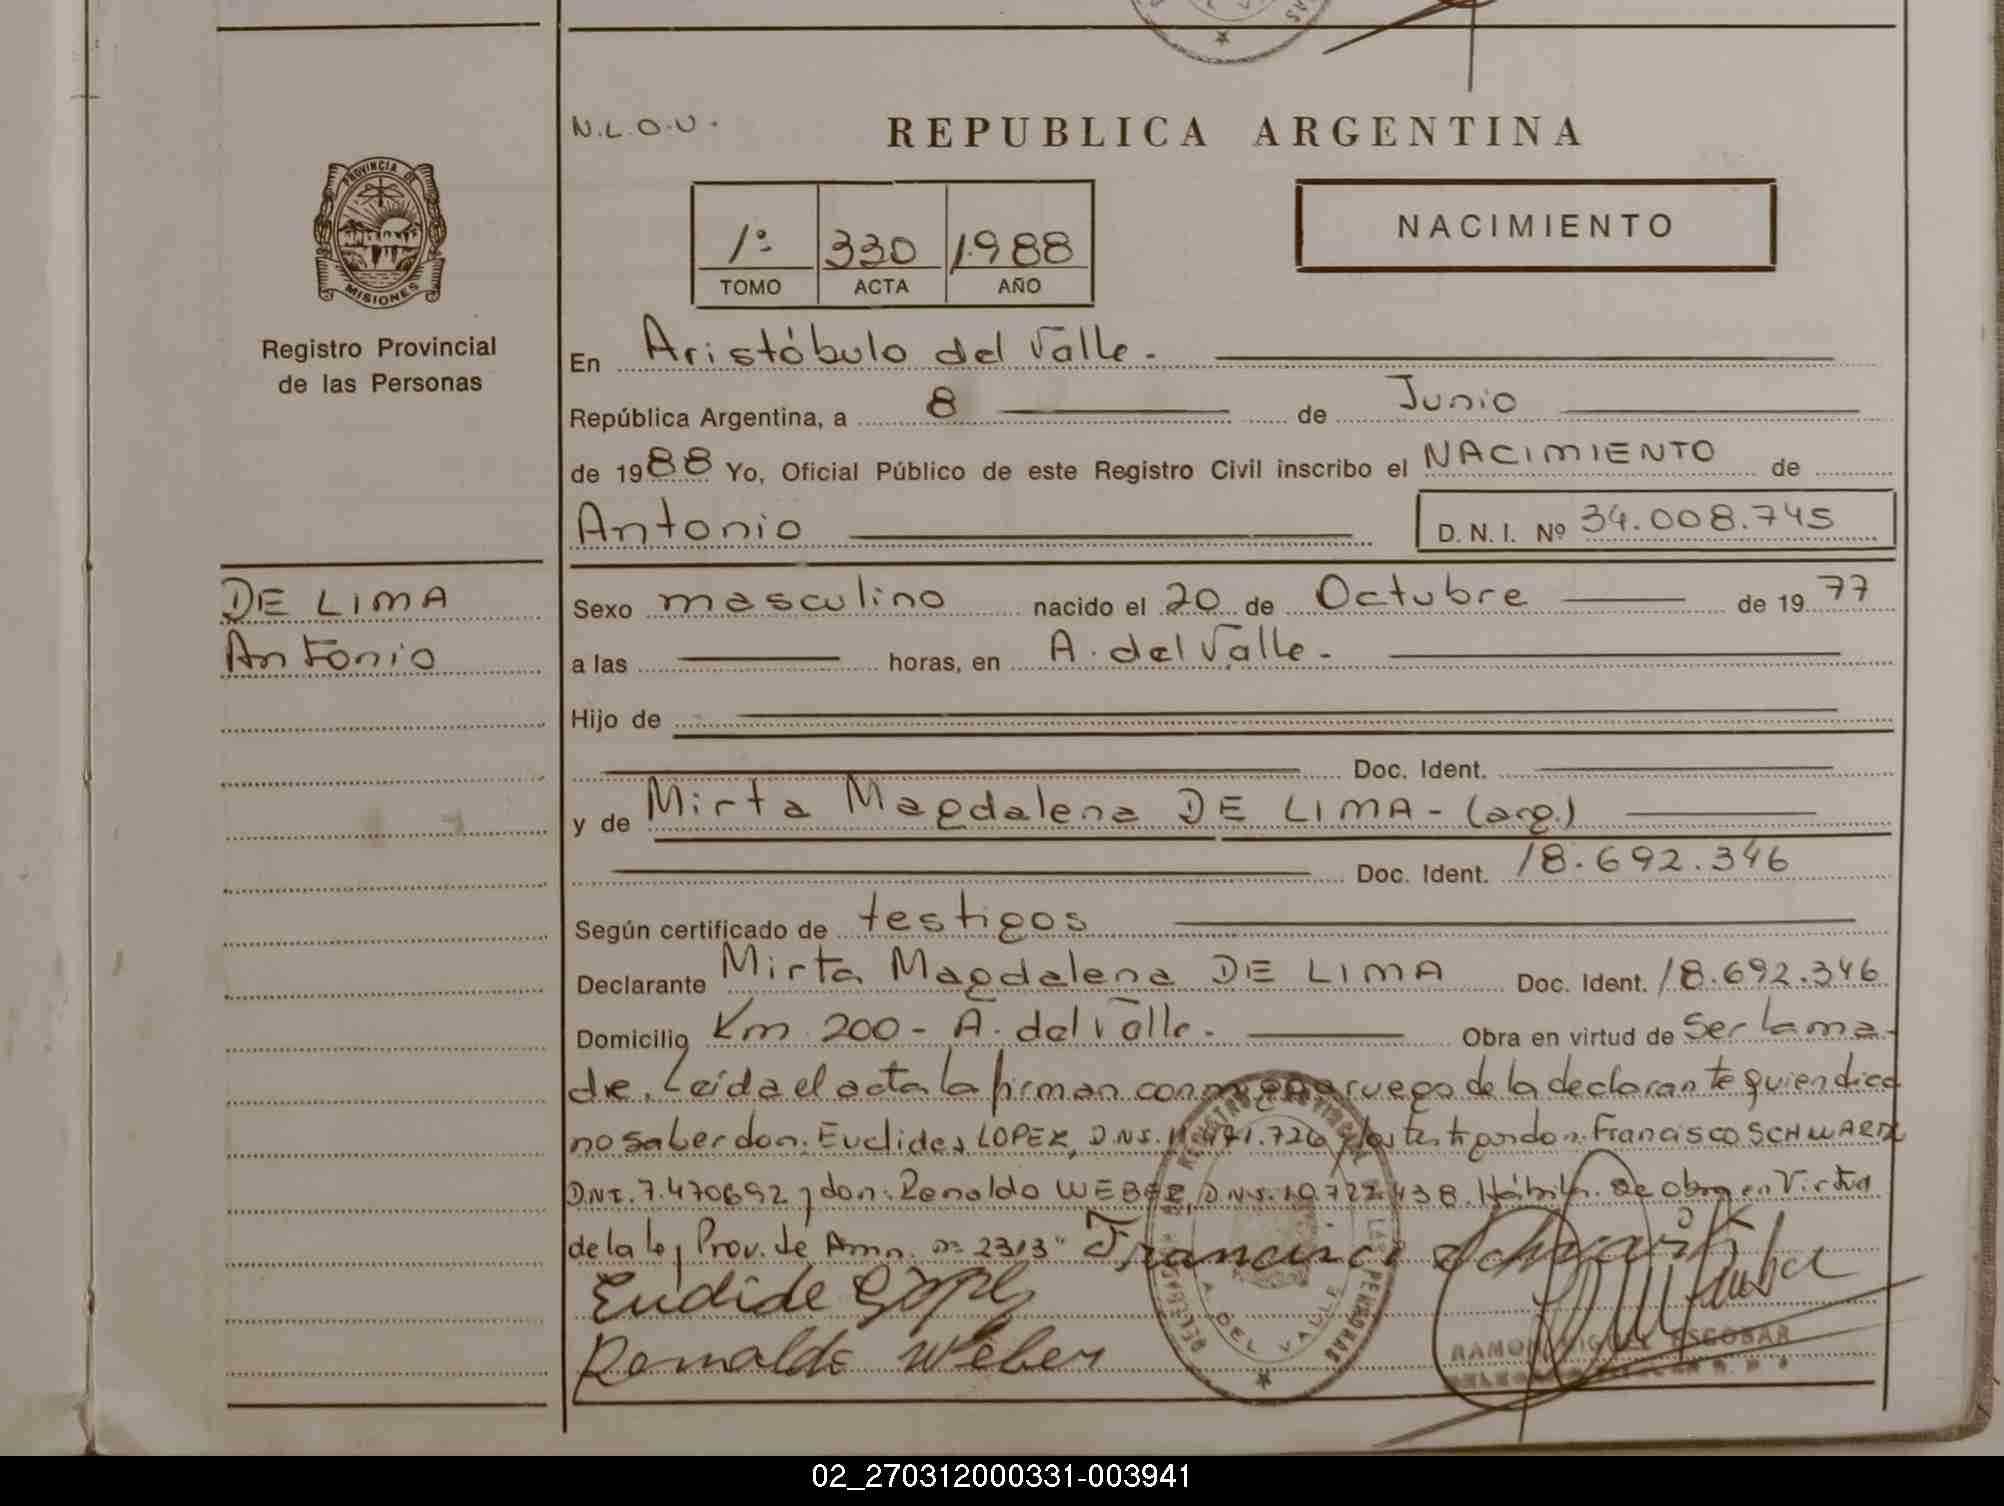 N.L.O.U.
REPUBLICA ARGENTINA
PROVINCIA DE MISIONES
1º 330 1988
TOMO ACTA AÑO
NACIMIENTO
Registro Provincial
de las Personas
En Aristóbulo del Valle.
República Argentina, a 8 de Junio
de 1988 Yo, Oficial Público de este Registro Civil inscribo el NACIMIENTO de
Antonio D. N. I. Nº 34.008.745
DE LIMA
Antonio
Sexo masculino nacido el 20 de Octubre de 1977
a las horas, en A. del Valle.
Hijo de
Doc. Ident.
y de Mirta Magdalena DE LIMA - (arg.)
Doc. Ident. 18.692.346
Según certificado de testigos
Declarante Mirta Magdalena DE LIMA Doc. Ident. 18.692.346
Domicilio Km 200 - A. del Valle. Obra en virtud de Ser la ma-
dre. Leída el acta la firman conmigo a ruego de la declarante quien dice
no saber don: Euclides LOPEZ, D.N.I. 11.471.726 y los testigos don: Francisco SCHWARTZ
D.N.I. 7.470692 y don: Renaldo WEBER, D.N.I. 10.722.438. Hábiles. Se obra en Virtud
de la ley Prov. de Amn. nº 2313"
Francisco Schwartz
Euclide López
Renaldo Weber
A. DEL VALLE
RAMON MIGUEL ESCOBAR
02_270312000331-003941